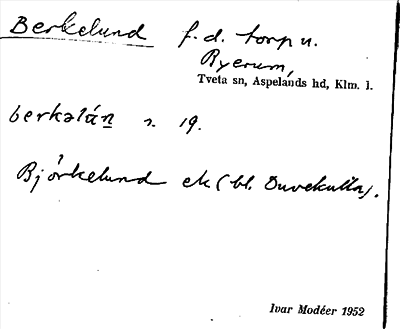 Berkelund f. d. torp u.
Ryerum,
Tveta sn, Aspelands hd, Klm. l.
berkəlán n. 19.
Björkelund ek (bl. Duvekulla).
Ivar Modéer 1952